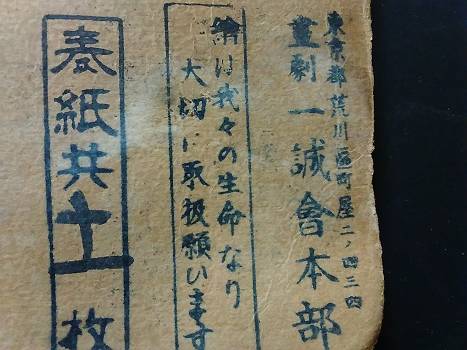 東京都荒川區町屋二ノ四三四
畫劇一誠會本部
繪は我々の生命なり
大切に取扱願います
表紙共十一枚